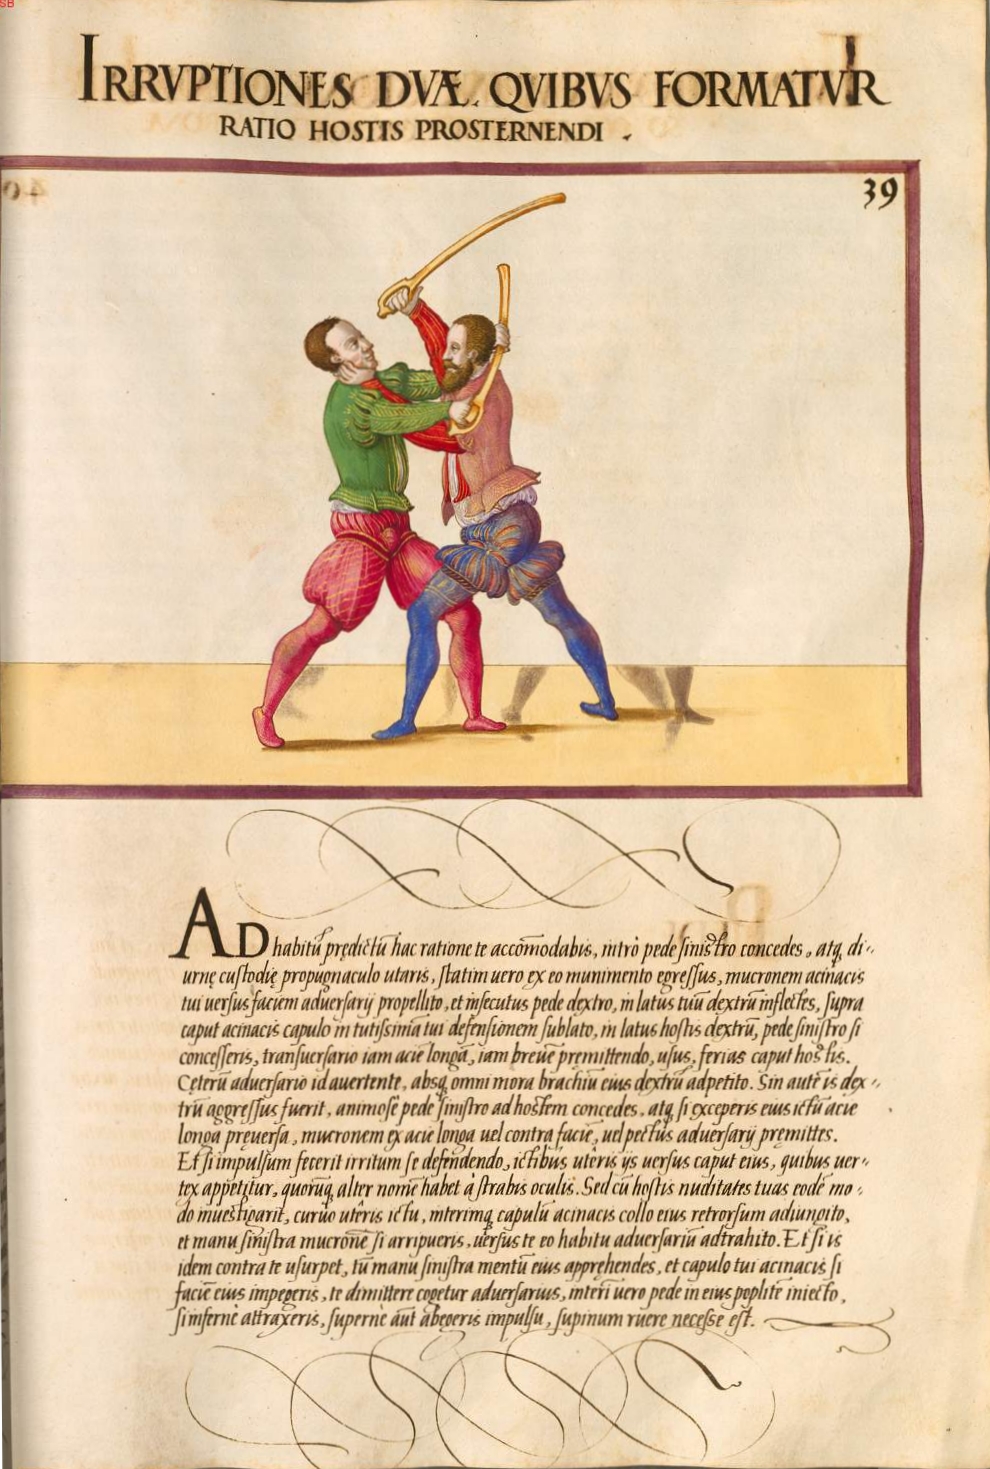 SB
IRRVPTIONES DVÆ. QVIBVS FORMATVR
RATIO HOSTIS PROSTERNENDI .
39
AD habitū prędictū hac ratione te accōmodabis, intrò pede sinistro concedes, atq, di-
urnę custodię propugnaculo utaris, statim uero ex eo munimento egressus, mucronem acinacis
tui uersus faciem aduersarij propellito, et insecutus pede dextro, in latus tuū dextrū inflectes, supra
caput acinacis capulo in tutissimā tui defensionem sublato, in latus hostis dextrū, pede sinistro si
concesseris, transuersario iam acie longa, iam breue pręmittendo, usus, ferias caput hostis.
Cęterū aduersario id auertente, absq, omni mora brachiū eius dextrū adpetito. Sin autē is dex-
trū aggressus fuerit, animosè pede sinistro ad hostem concedes, atq, si exceperis eius ictū acie
longa pręuersa, mucronem ex acie longa uel contra faciē, uel pectus aduersarij pręmittes.
Et si impulsum fecerit irritum se defendendo, ictibus utēris ijs uersus caput eius, quibus uer-
tex appetitur, quorūq, alter nomē habet à strabis oculis. Sed cū hostis nuditates tuas eodē mo-
do inuestigarit, curuo utēris ictu, interimq, capulū acinacis collo eius retrorsum adiungito,
et manu sinistra mucronē si arripueris, uersus te eo habitu aduersariū adtrahito. Et si is
idem contra te usurpet, tū manu sinistra mentū eius apprehendes, et capulo tui acinacis si
faciē eius impegeris, te dimittere cogetur aduersarius, interī uero pede in eius poplitē iniecto,
si infernè attraxeris, supernè aūt abegeris impulsu, supinum ruere necesse est.